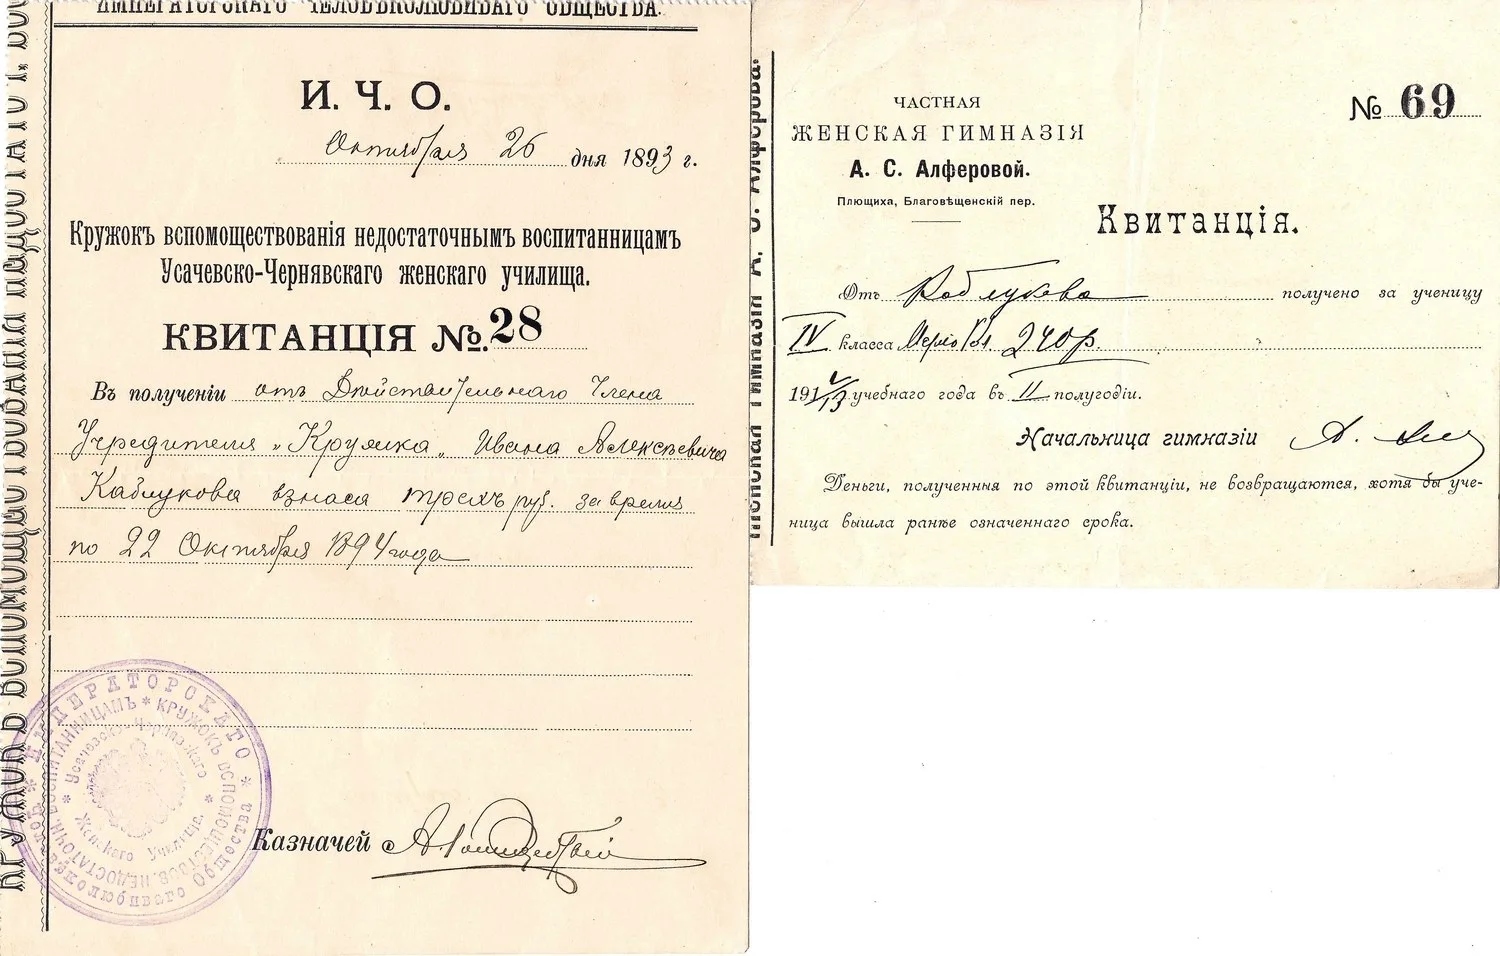 ИМПЕРАТОРСКАГО ЧЕЛОВѢКОЛЮБИВАГО ОБЩЕСТВА.
И. Ч. О.
Октября 26 дня 1893 г.
Кружокъ вспомоществованія недостаточнымъ воспитанницамъ
Усачевско-Чернявскаго женскаго училища.
КВИТАНЦІЯ №. 28
Въ полученіи отъ Дѣйствительнаго Члена
Учредителя „Кружка„ Ивана Алексѣевича
Каблукова взноса трехъ руб. за время
по 22 Октября 1894 года
Казначей
ИМПЕРАТОРСКАГО
Человѣколюбиваго Общества
КРУЖОКЪ ВСПОМОЩЕСТВОВ. НЕДОСТАТОЧН. ВОСПИТАННИЦАМЪ
Усачевско-Чернявскаго
Женскаго Училища.
ЧАСТНАЯ
ЖЕНСКАЯ ГИМНАЗІЯ
А. С. Алферовой.
Плющиха, Благовѣщенскій пер.
№ 69
Квитанція.
Отъ Каблукова получено за ученицу
IV класса 240 р.
1912/13 учебнаго года въ II полугодіи.
Начальница гимназіи А.
Деньги, полученныя по этой квитанціи, не возвращаются, хотя бы уче-
ница вышла ранѣе означеннаго срока.